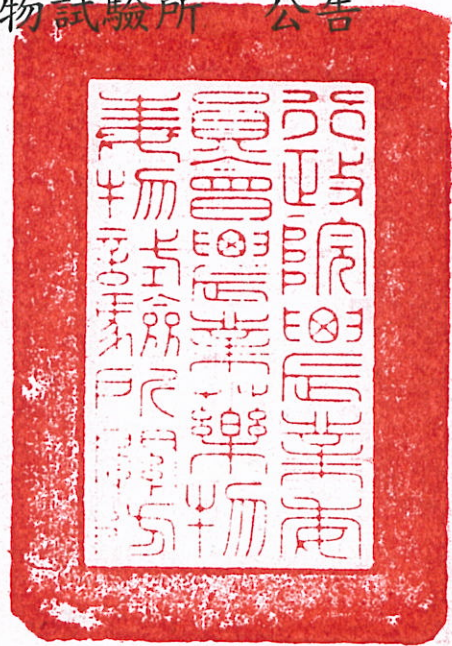 物試驗所　公告
行政院農業委
員會農業藥物
毒物試驗所關防